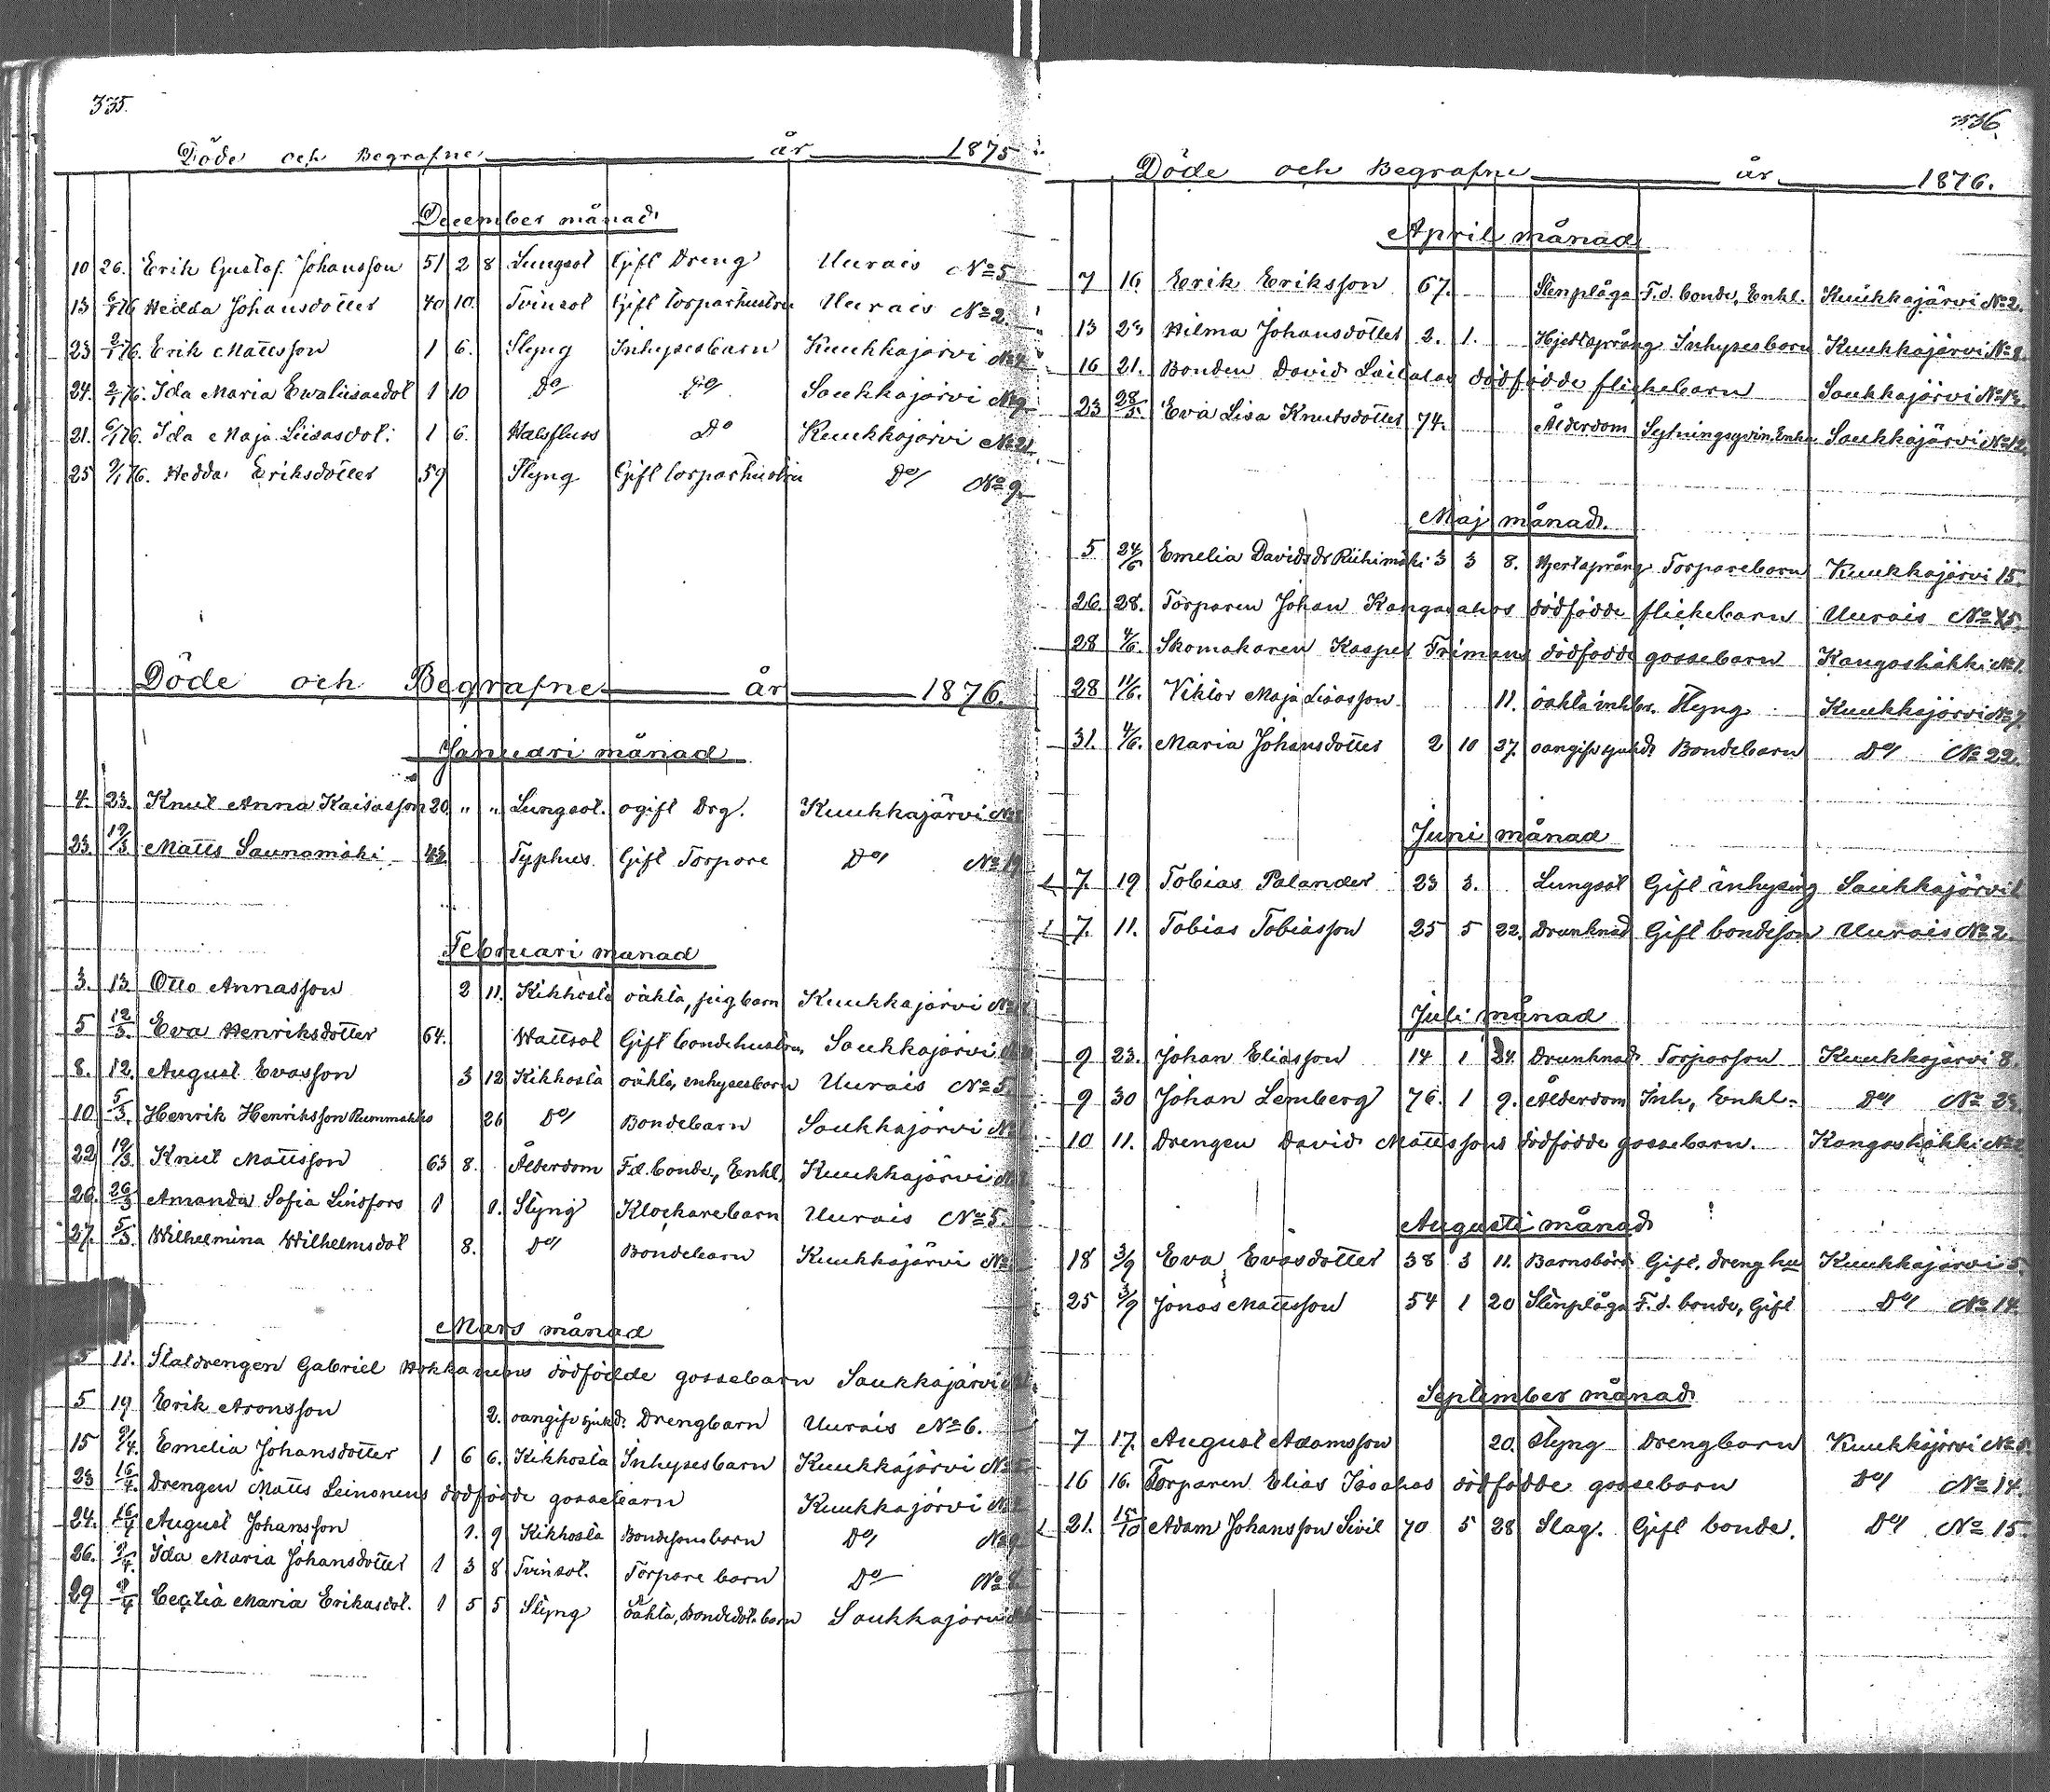 335.
Döde och Begrafne år 1875
December månad
10 26. Erik Gustaf Johansson 51 2 8 Lungsot Gift Dreng Uurais No 5
13 6/1 76 Hedda Johansdotter 40 10. Tvinsot Gift torparhustru Uurais No 2.
23 2/1 76. Erik Mattsson 1 6. Slyng Inhysesbarn Kuukkajärvi
24. 2/1 76. Ida Maria Ewaliisasdot 1 10 Do Do Saukkajärvi No 9
21. 6/1 76. Ida Maja Liisasdot: 1 6. Halsfluss Do Kuukkajärvi No 21.
25 9/1 76. Hedda Eriksdotter 59 Slyng Gift torparhustru Do No 9.
Döde och Begrafne år 1876.
Januari månad
4. 23. Knut Anna Kaisasson 20 " " Lungsot. ogift Drg. Kuukkajärvi
23. 19/3 Matts Saunamäki Typhus Gift Torpare Do No 19
Februari månad
3. 13 Otto Annasson 2 11. Kikhosta oäkta, pigbarn Kuukkajärvi
5 12/3. Eva Henriksdotter 64. Wattsot Gift bondehustru, Saukkajärvi
8. 12. August Evasson 3 12 Kikhosta oäkta, inhysesbarn Uurais No 5.
10 5/3. Henrik Henriksson Rummakko 26 Do Bondebarn Saukkajärvi
22 19/3. Knut Mattsson 63 8. Ålderdom F.d. bonde, Enkl. Kuukkajärvi
26. 26/3 Amanda Sofia Lindfors 1 Slyng Klockarebarn Uurais No 5.
27. 5/3. Wilhelmina Wilhelmsdot 8. Do Bondebarn Kuukkajärvi
Mars månad
5 11. Statdrengen Gabriel Hokkanens dödfödde gossebarn Saukkajärvi
5 19 Erik Aronsson 2. oangifv. sjukd. Drengbarn Uurais No 6.
15 9/4. Emelia Johansdotter 1 6 6. Kikhosta Inhysesbarn Kuukkajärvi
23 16/4. Drengen Matts Leinonens dödfödde gossebarn Kuukkajärvi
24. 16/4 August Johansson 1. 9 Kikhosta Bondesonsbarn Do No 9
26. 9/4. Ida Maria Johansdotter 1 3 8 Tvinsot. Torpare barn Do
29 9/4 Cecilia Maria Erikasdot. 1 5 5 Slyng Oäkta, Bondedot. barn Saukkajärvi
336.
Döde och Begrafne år 1876.
April månad
7 16 Erik Eriksson 67. Stenplåga F.d. bonde, Enkl. Kuukkajärvi No 2.
13 23 Hilma Johansdotter 2. 1. Hjertsprång Inhysesbarn Kuukkajärvi
16 21. Bonden David dödfödde flickebarn Saukkajärvi No 12.
23 28/5. Eva Lisa Knutsdotter 74. Ålderdom Sytningsqvin. Enka Saukkajärvi No 12.
Maj månad.
5 24/6 Emelia Davidsdr Riihimäki 3 3 8. Hjertsprång Torparebarn Kuukkajärvi 15.
26. 28. Torparen Johan Kangasahos dödfödde flickebarn Uurais
28 4/6. Skomakaren Kasper Frimans dödfödde gossebarn Kangashäkki No 1.
28 11/6. Viktor Maja Lisasson 11. oäkta inhbr. Slyng Kuukkajärvi No 7.
31. 4/6. Maria Johansdotter 2 10 27. oangifv. sjukd. Bondebarn Do No 22.
Juni månad
7. 19 Tobias Palander 23 3. Lungsot Gift inhysing Saukkajärvi
7. 11. Tobias Tobiasson 25 5 22. Drunknad Gift bondeson Uurais No 2.
Juli månad
9 23. Johan Eliasson 14 1 24. Drunknad Torparson Kuukkajärvi 8.
9 30 Johan Lemberg 76. 1 9. Ålderdom Inh, Enkl. Do No 23.
10 11. Drengen David Mattssons dödfödde gossebarn. Kangashäkki No 2
Augusti månad
18 3/9 Eva Evasdotter 38 3 11. Barnsbörd Gift. dreng hu Kuukkajärvi 5.
25 3/9 Jonas Mattsson 54 1 20 Stenplåga F.d. bonde, Gift Do No 14.
September månad
7 17. August Adamsson 20. Slyng Drengbarn Kuukkajärvi
16 16. Torparen Elias Isoahos dödfödde gossebarn Do No 14.
21. 15/10 Adam Johansson Sivil 70 5 28 Slag. Gift bonde. Do No 15.